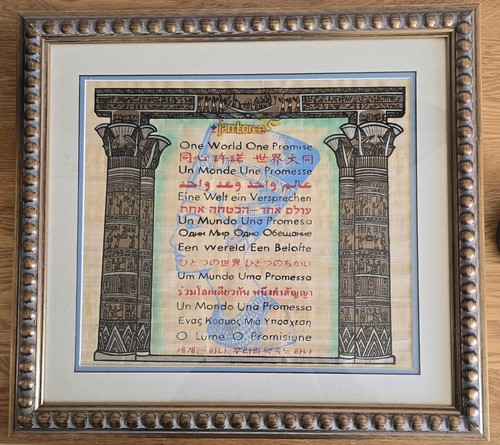 Jamboree
One World One Promise
同心許諾 世界大同
Un Monde Une Promesse
عالم واحد وعد واحد
Eine Welt ein Versprechen
עולם אחד-הבטחה אחת
Un Mundo Una Promesa
Один Мир Одно Обещание
Een wereld Een Belofte
ひとつの世界 ひとつのちかい
Um Mundo Uma Promessa
ร่วมโลกเดียวกัน หนึ่งคำสัญญา
Un Mondo Una Promessa
Ενας Κοσμος Μια Υποσχεση
O Lume O Promisiune
세계는 하나, 우리의 약속도 하나